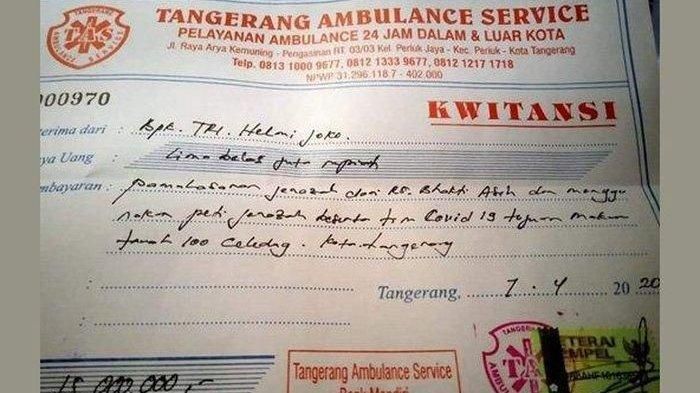 TANGERANG AMBULANCE SERVICE
PELAYANAN AMBULANCE 24 JAM DALAM & LUAR KOTA
Jl. Raya Arya Kemuning - Pengasinan RT. 03/03 Kel. Periuk Jaya - Kec. Periuk - Kota Tangerang
Telp. 0813 1000 9677, 0812 1333 9677, 0812 1217 1718
NPWP 31.296.118.7 - 402.000
TAS
000970
KWITANSI
terima dari : Bpk. TRI. Helmi Joko.
ya Uang : Lima belas juta rupiah
mbayaran : pemakasaran jenazah dari RS. Bhakti Asih dan menggu
nakan peti jenazah beserta tim Covid 19 tujuan makam
tanah 100 Ciledug. Kota tangerang
Tangerang, 7 - 4 2020
TANGERANG
TAS
AMBUL
METERAI
TEMPEL
Tangerang Ambulance Service
Bank Mandiri
15.000.000,-